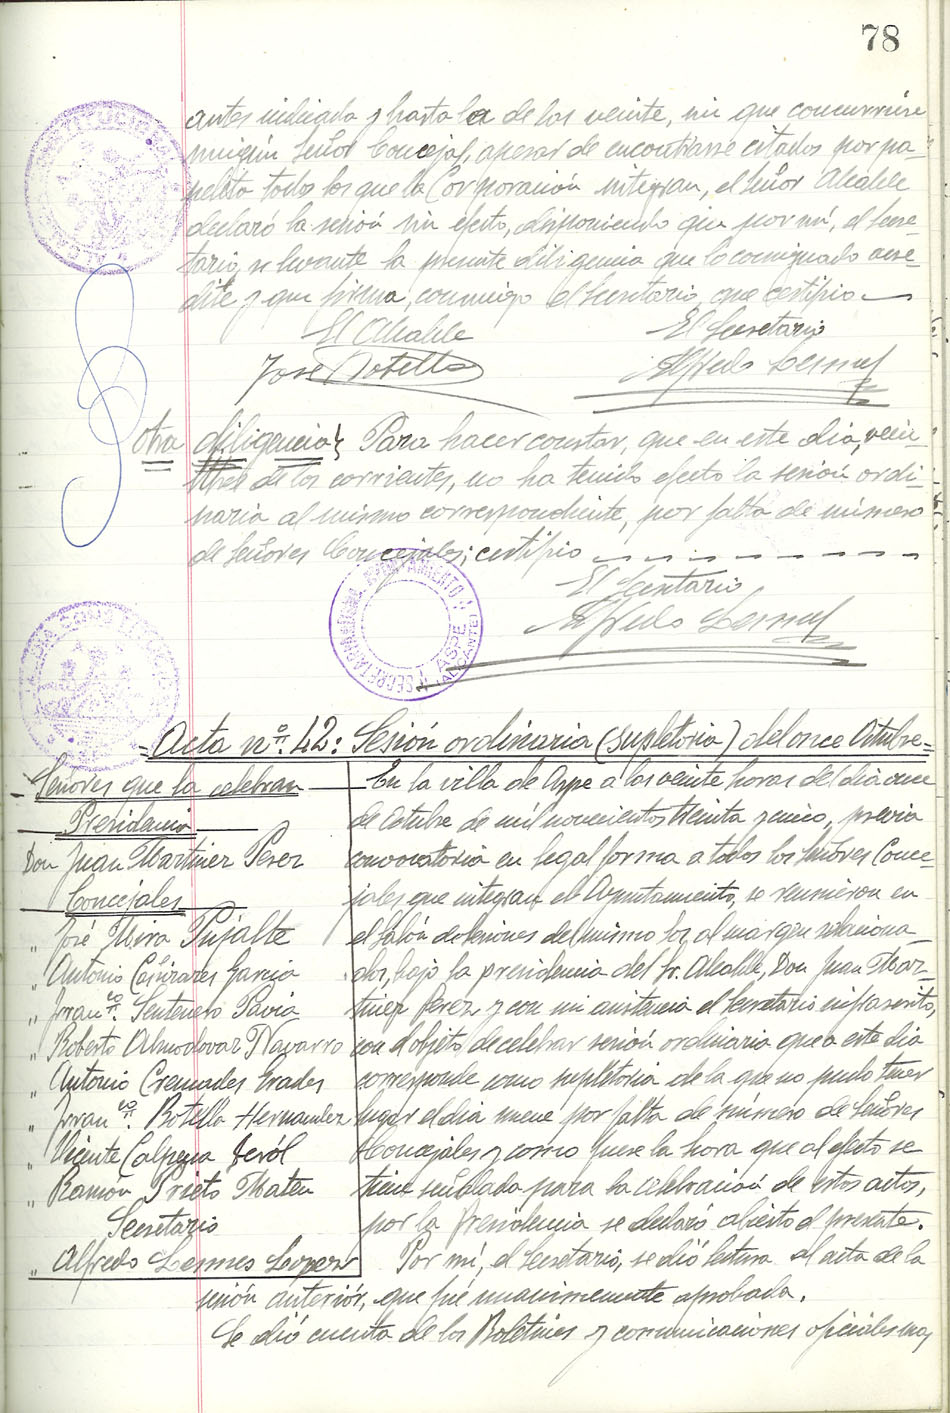 78
antes indicada y hasta la de las veinte, sin que concurriese
ningún Señor Concejal, apesar de encontrarse citados por pa-
peleta todos los que la Corporación integran, el Señor Alcalde
declaró la sesión sin efecto, disponiendo que por mí, el Secre-
tario, se levante la presente diligencia que lo consignado acre-
dite y que firma, conmigo el Secretario, que certifico
El Alcalde El Secretario
José Botella Alfredo
Otra diligencia} Para hacer constar, que en este día,
de los corrientes, no ha tenido efecto la sesión ordi-
naria al mismo correspondiente, por falta de número
de Señores Concejales; certifico
El Secretario
Alfredo
AYUNTAMIENTO
ASPE
(ALICANTE)
Acta nº. 42: Sesión ordinaria (supletoria) del once Octubre
Señores que la celebran
Presidencia
Don Juan Martinez Perez
Concejales
" José Mira Pujalte
" Antonio Cañizares Garcia
" Franco. Sentenero Pavia
" Roberto Almodovar Navarro
" Antonio Cremades Grades
" Franco. Botella Hernandez
" Vicente Calpena
" Ramón Prieto Mateu
Secretario
" Alfredo Lopez
En la villa de Aspe a las veinte horas del día once
de Octubre de mil novecientos treinta y cinco, previa
convocatoria en legal forma a todos los Señores Conce-
jales que integran el Ayuntamiento, se reunieron en
el Salón de sesiones del mismo los al margen relaciona-
dos, bajo la presidencia del Sr. Alcalde, Don Juan Mar-
tinez Perez y con mi asistencia el Secretario infrascrito,
con objeto de celebrar sesión ordinaria que a este día
corresponde como supletoria de la que no pudo tener
lugar el día nueve por falta de número de Señores
Concejales y como fuese la hora que al efecto se
tiene señalada para la celebración de estos actos,
por la Presidencia se declaró abierto el presente.
Por mí, el Secretario, se dió lectura al acta de la
sesión anterior, que fué unanimemente aprobada.
Se dió cuenta de los Boletines y comunicaciones oficiales